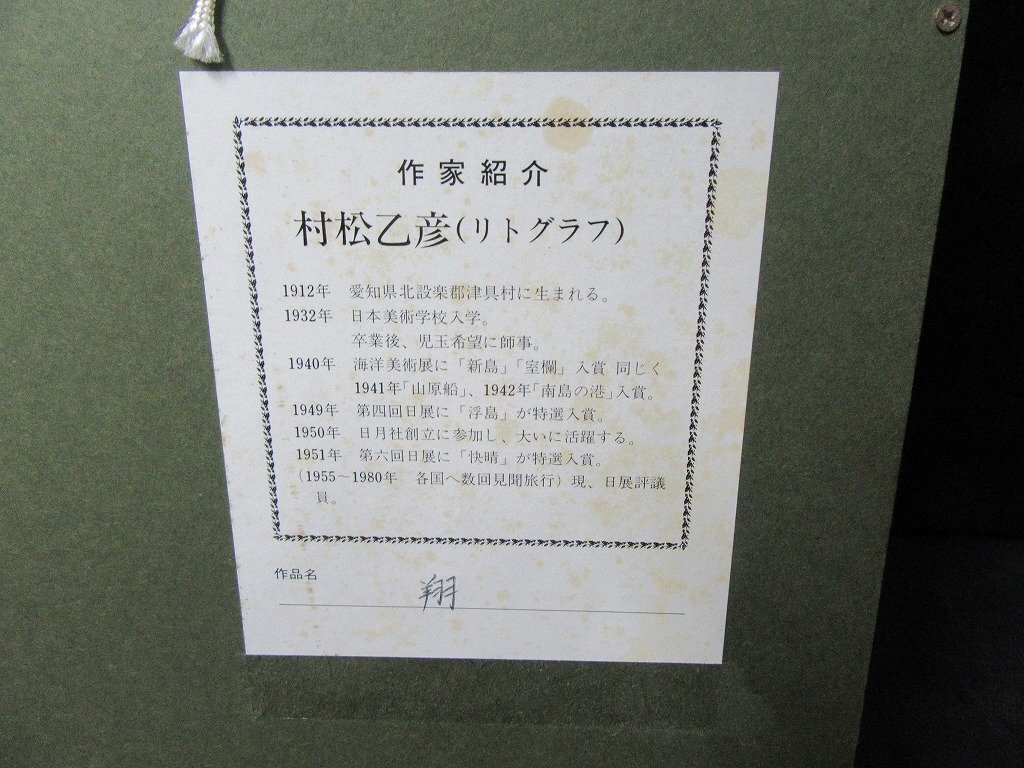 作家紹介
村松乙彦(リトグラフ)
1912年 愛知県北設楽郡津具村に生まれる。
1932年 日本美術学校入学。
卒業後、児玉希望に師事。
1940年 海洋美術展に「新島」「室欄」入賞 同じく
1941年「山原船」、1942年「南島の港」入賞。
1949年 第四回日展に「浮島」が特選入賞。
1950年 日月社創立に参加し、大いに活躍する。
1951年 第六回日展に「快晴」が特選入賞。
(1955～1980年 各国へ数回見聞旅行)現、日展評議
員。
作品名 翔